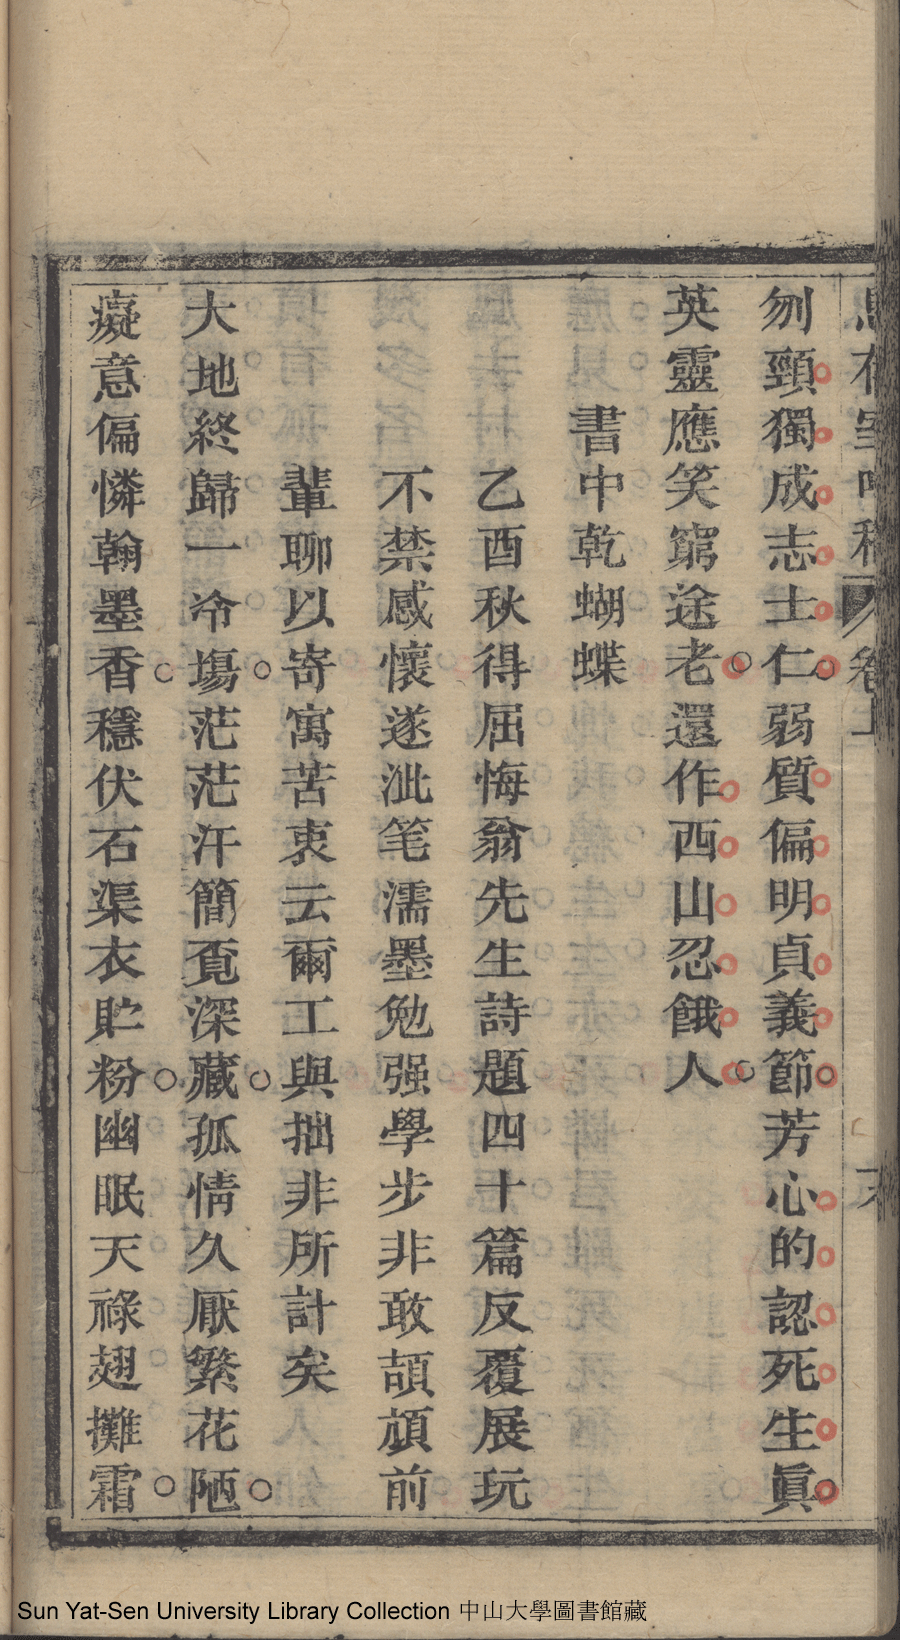 刎頸獨成志士仁弱質偏明貞義節芳心的認死生眞
英靈應笑窮途老還作西山忍餓人
書中乾蝴蝶
乙酉秋得屈悔翁先生詩題四十篇反覆展玩
不禁感懷遂泚笔濡墨勉强學步非敢頡頏前
輩聊以寄寓苦衷云爾工與拙非所計矣
大地終歸一冷塲茫茫汗簡覔深藏孤情久厭繁花陋
癡意偏憐翰墨香穩伏石渠衣貯粉幽眠天祿翅攤霜
Sun Yat-Sen University Library Collection 中山大學圖書館藏